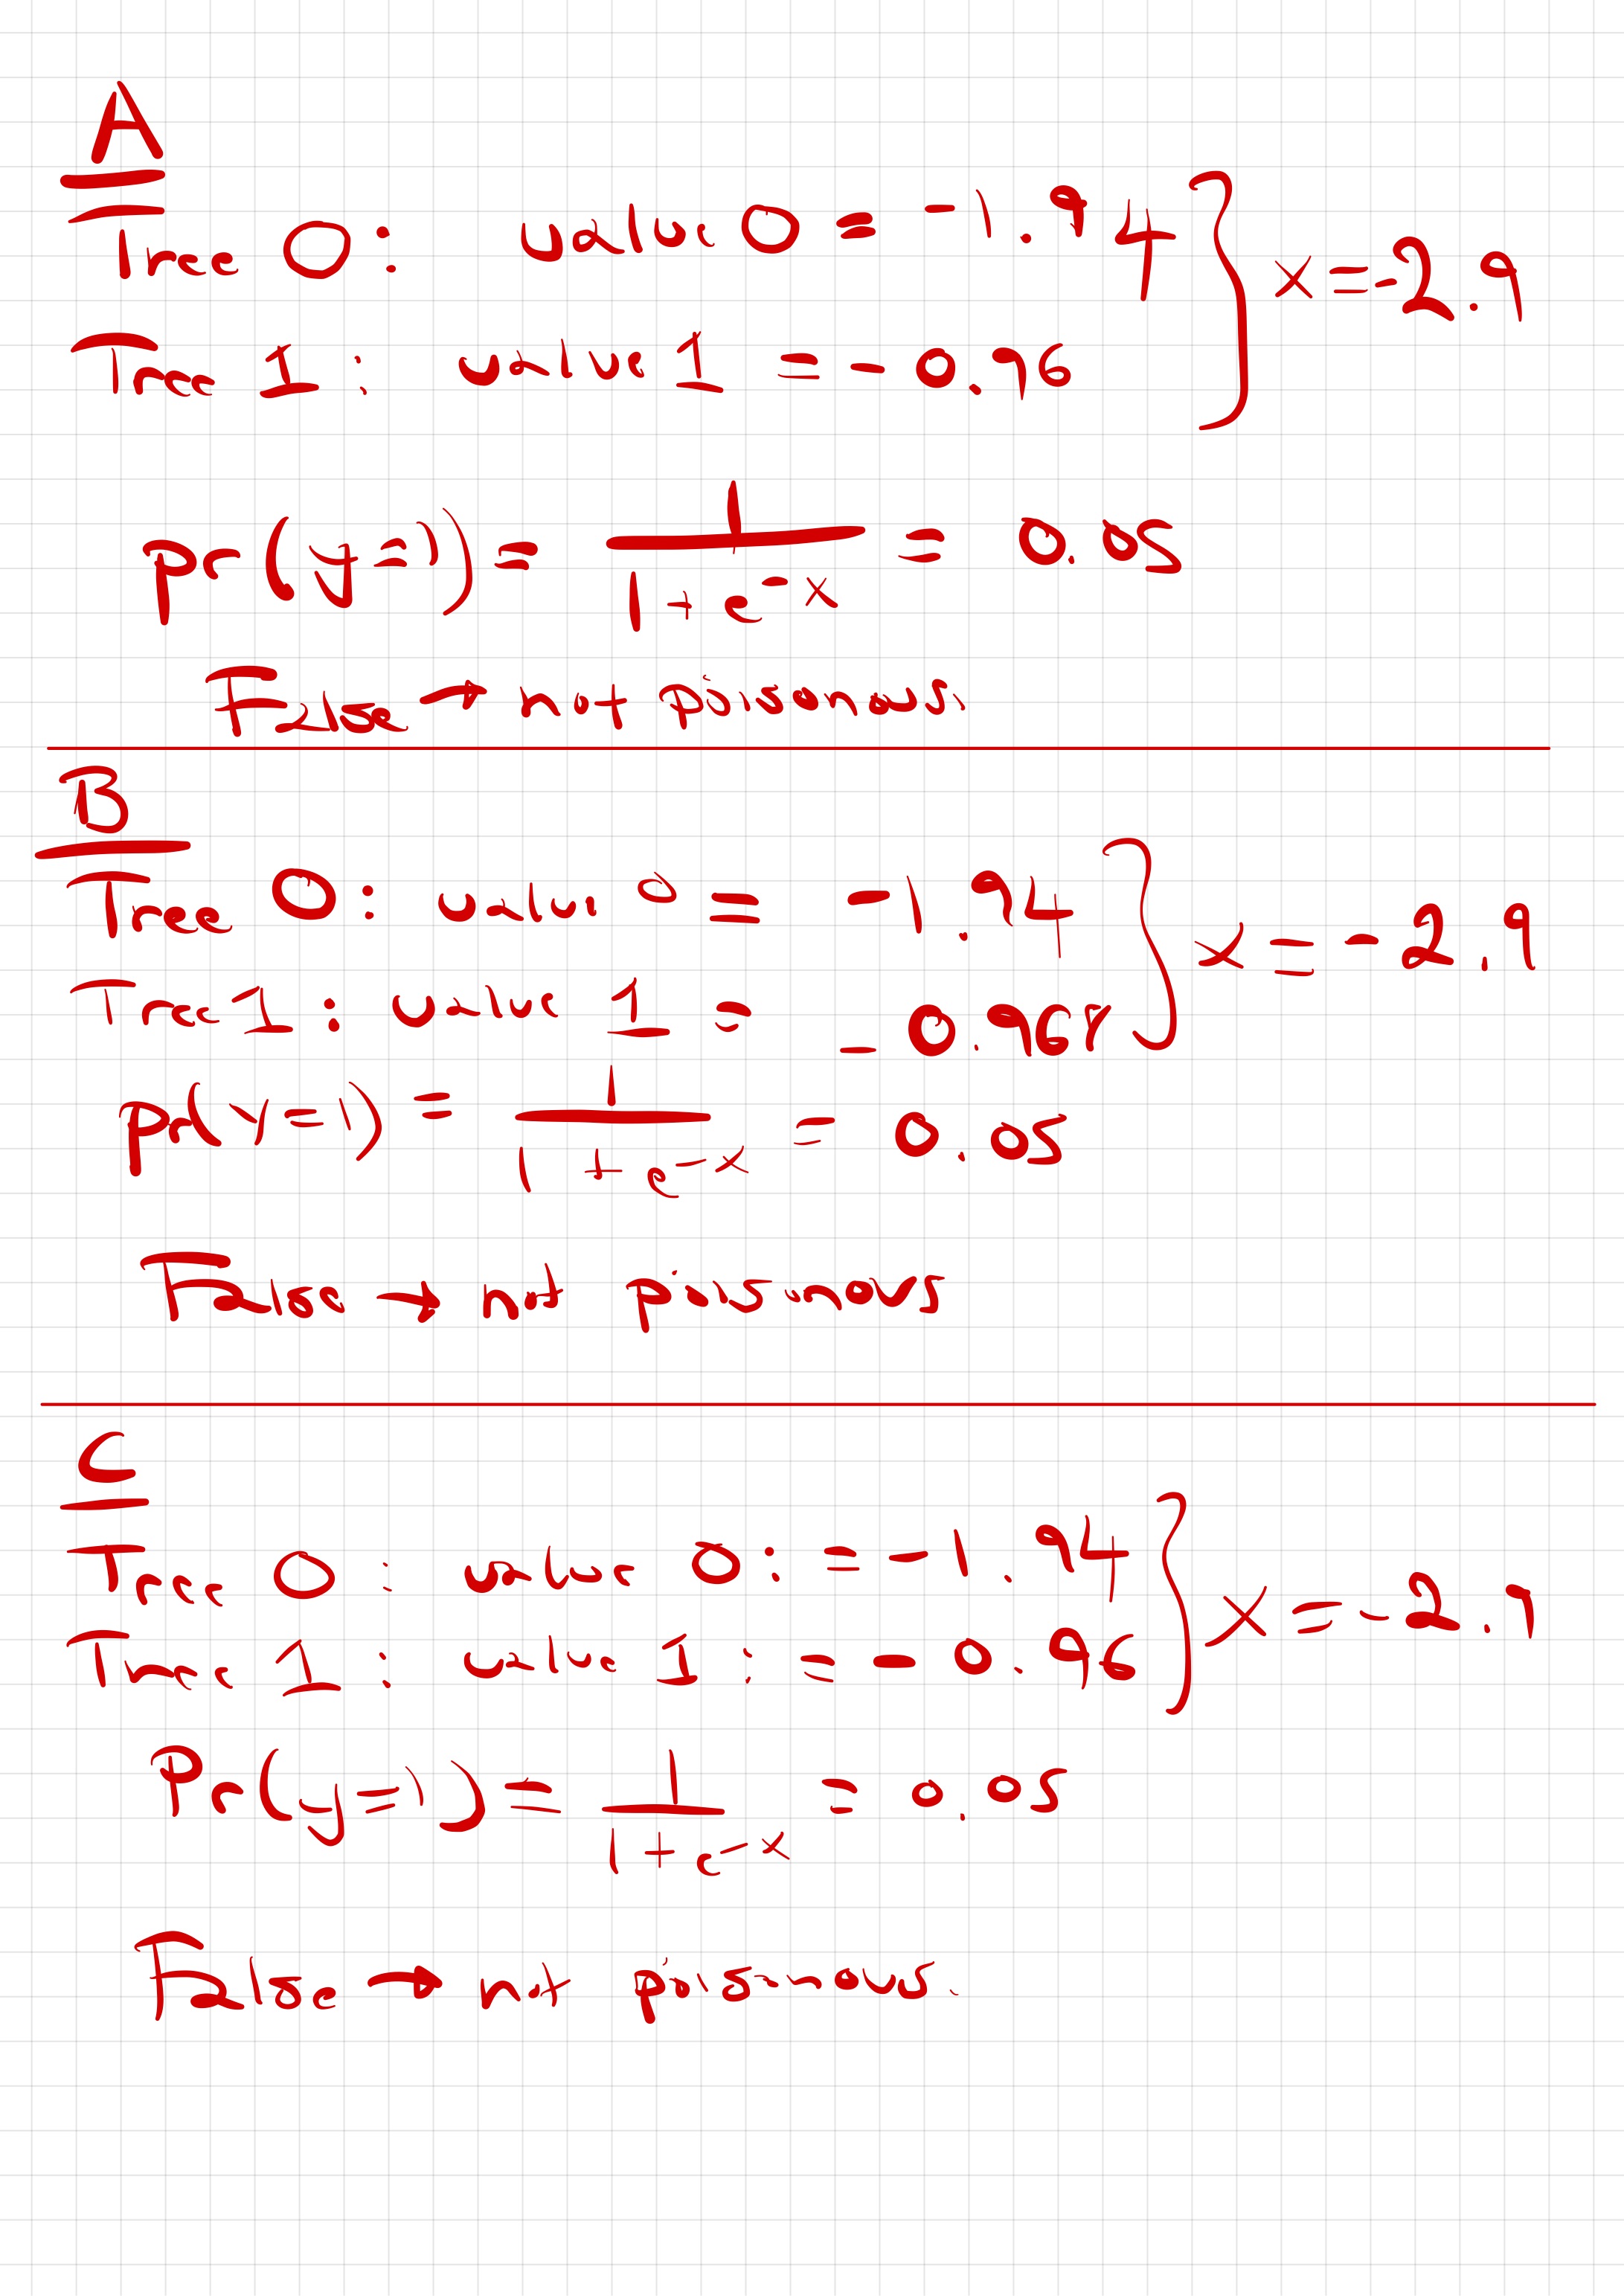 A
Tree 0: value 0 = -1.94 } x = -2.9
Tree 1: value 1 = -0.96
pr(y=1) = 1 / (1 + e^-x) = 0.05
False → not poisonous.
B
Tree 0: value 0 = -1.94 } x = -2.9
Tree 1: value 1 = -0.968
pr(y=1) = 1 / (1 + e^-x) = 0.05
False → not poisnous
C
Tree 0: value 0: = -1.94 } x = -2.9
Tree 1: value 1: = -0.96
Pr(y=1) = 1 / (1 + e^-x) = 0.05
False → not poisnous.